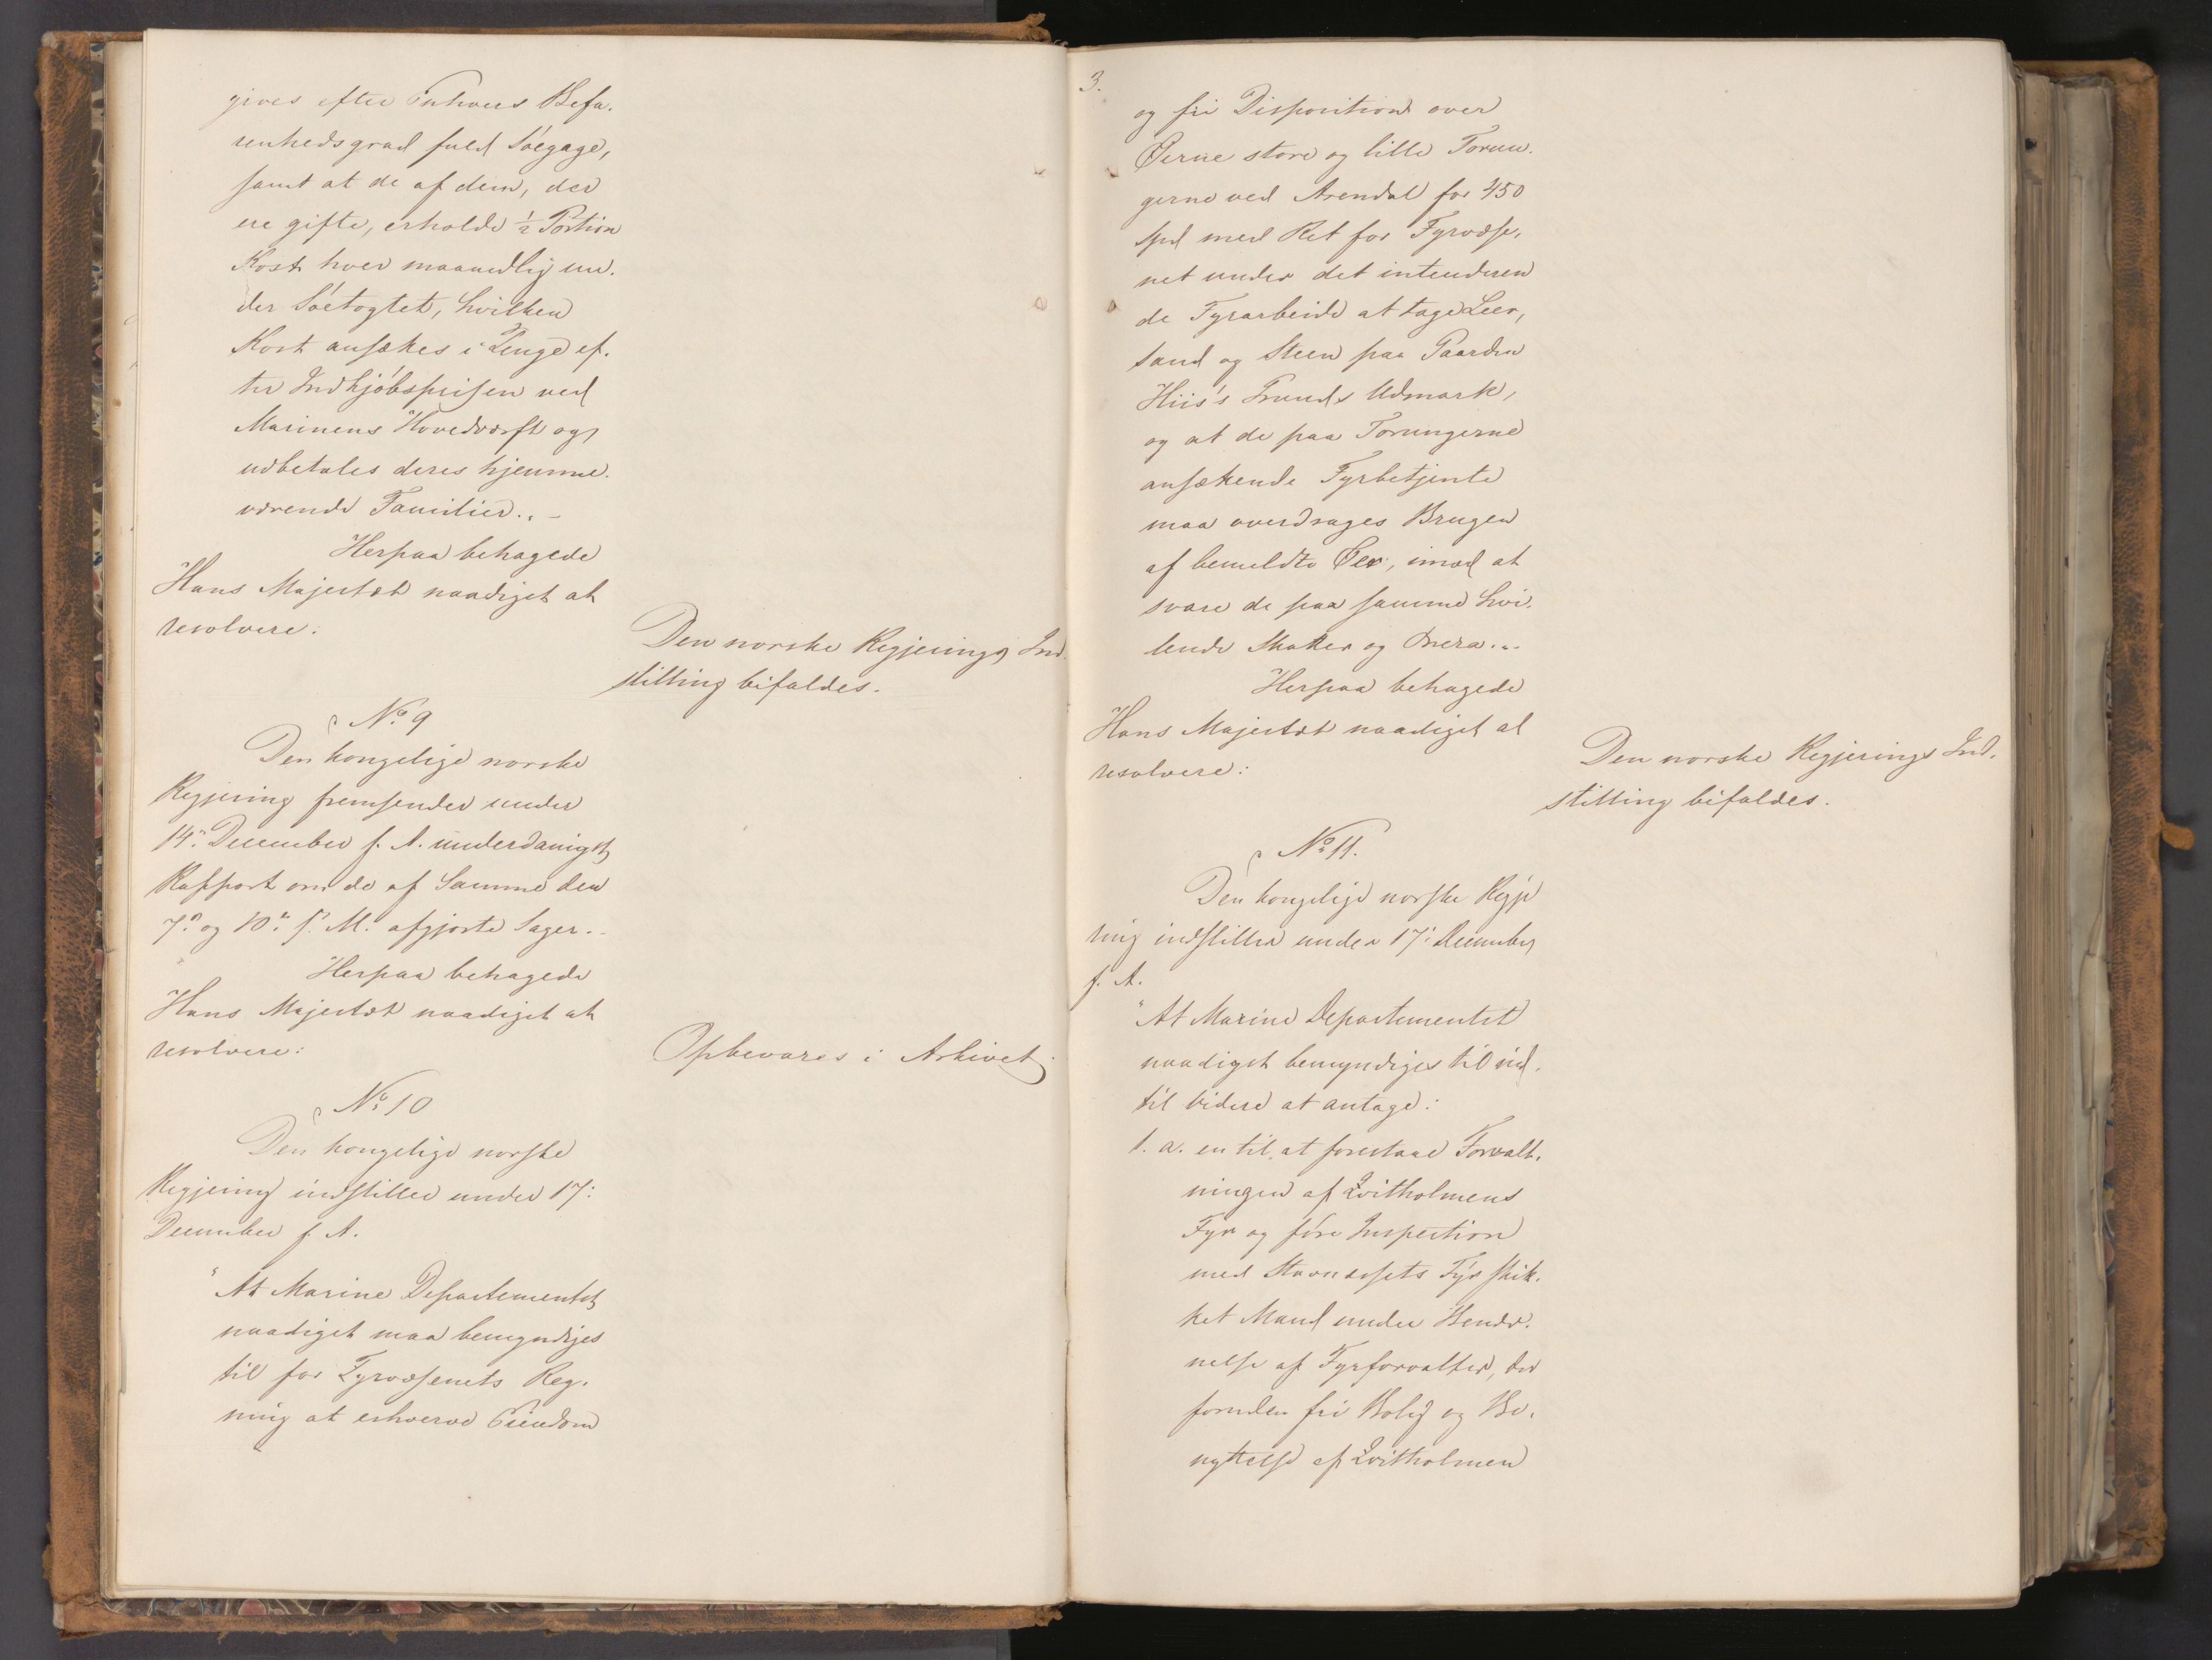 gives efter Enhvers Befa-
renhedsgrad fuld Söegage,
samt at de af dem, der
ere gifte, erholde ½ Portion
Kost hver maanedlig un-
der Söetogtet, hvilken
Kost ansættes i Penge ef-
ter Indkjöbsprisen ved
Marinens Hovedværft og
udbetales deres hjemme-
værende Familier."-
Herpaa behagede
Hans Majestæt naadigst at
resolvere:
Den norske Regjerings Ind-
stilling bifaldes.
No 9
Den kongelige norske
Regjering fremsender under
14de December f. A. underdanigst
Rapport om de af Samme den
7de og 10de s. M. afgjorte Sager.-
Herpaa behagede
Hans Majestæt naadigst at
resolvere:
Opbevares i Arkivet.
No 10
Den kongelige norske
Regjering indstiller under 17de
December f. A.
"At Marine Departementet
naadigst maa bemyndiges
til for Fyrvæsenets Reg-
ning at erhverve Eiendom
3.
og fri Disposition over
Øerne store og lille Torun-
gerne ved Arendal for 450
Spd med Ret for Fyrvæse-
net under det intenderen
de Fyrarbeide at tage Leer,
Sand og Steen paa Gaarden
Hiis's Grunds Udmark,
og at de paa Torungerne
ansættende Fyrbetjente
maa overdrages Brugen
af bemeldte Øer, imod at
svare de paa samme hvi-
lende Skatter og Onera."-
Herpaa behagede
Hans Majestæt naadigst at
resolvere:
Den norske Regjerings Ind-
stilling bifaldes.
No 11.
Den kongelige norske Regje
ring indstiller under 17de December
f. A.
"At Marine Departementet
naadigst bemyndiges til ind-
til videre at antage:
1. a. en til at forestaae Forvalt-
ningen af Qvitholmens
Fyr og före Inspection
med Stavnæsets Fyr skik-
ket Mand under Benæv-
nelse af Fyrforvalter, der
foruden fri Bolig og Be-
nyttelse af Qvitholmen